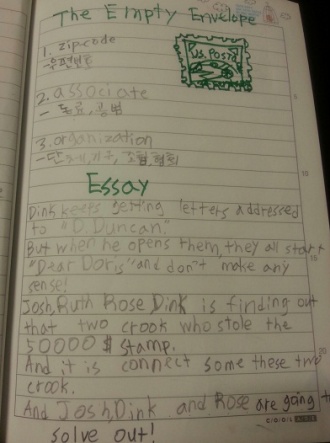 The Empty Envelope
1. zipcode
-우편번호
U.S. Posta
2. associate
- 동료, 공범
3. organization
- 단체, 기구, 조합, 협회
Essay
Dink keeps getting letters addressed
to "D. Duncan."
But when he opens them, they all start
"Dear Doris" and don't make any
sense!
Josh, Ruth Rose Dink is finding out
that two crook who stole the
50000 $ stamp.
And it is connect some these two
crook.
And Josh, Dink and Rose are going to
solve out!